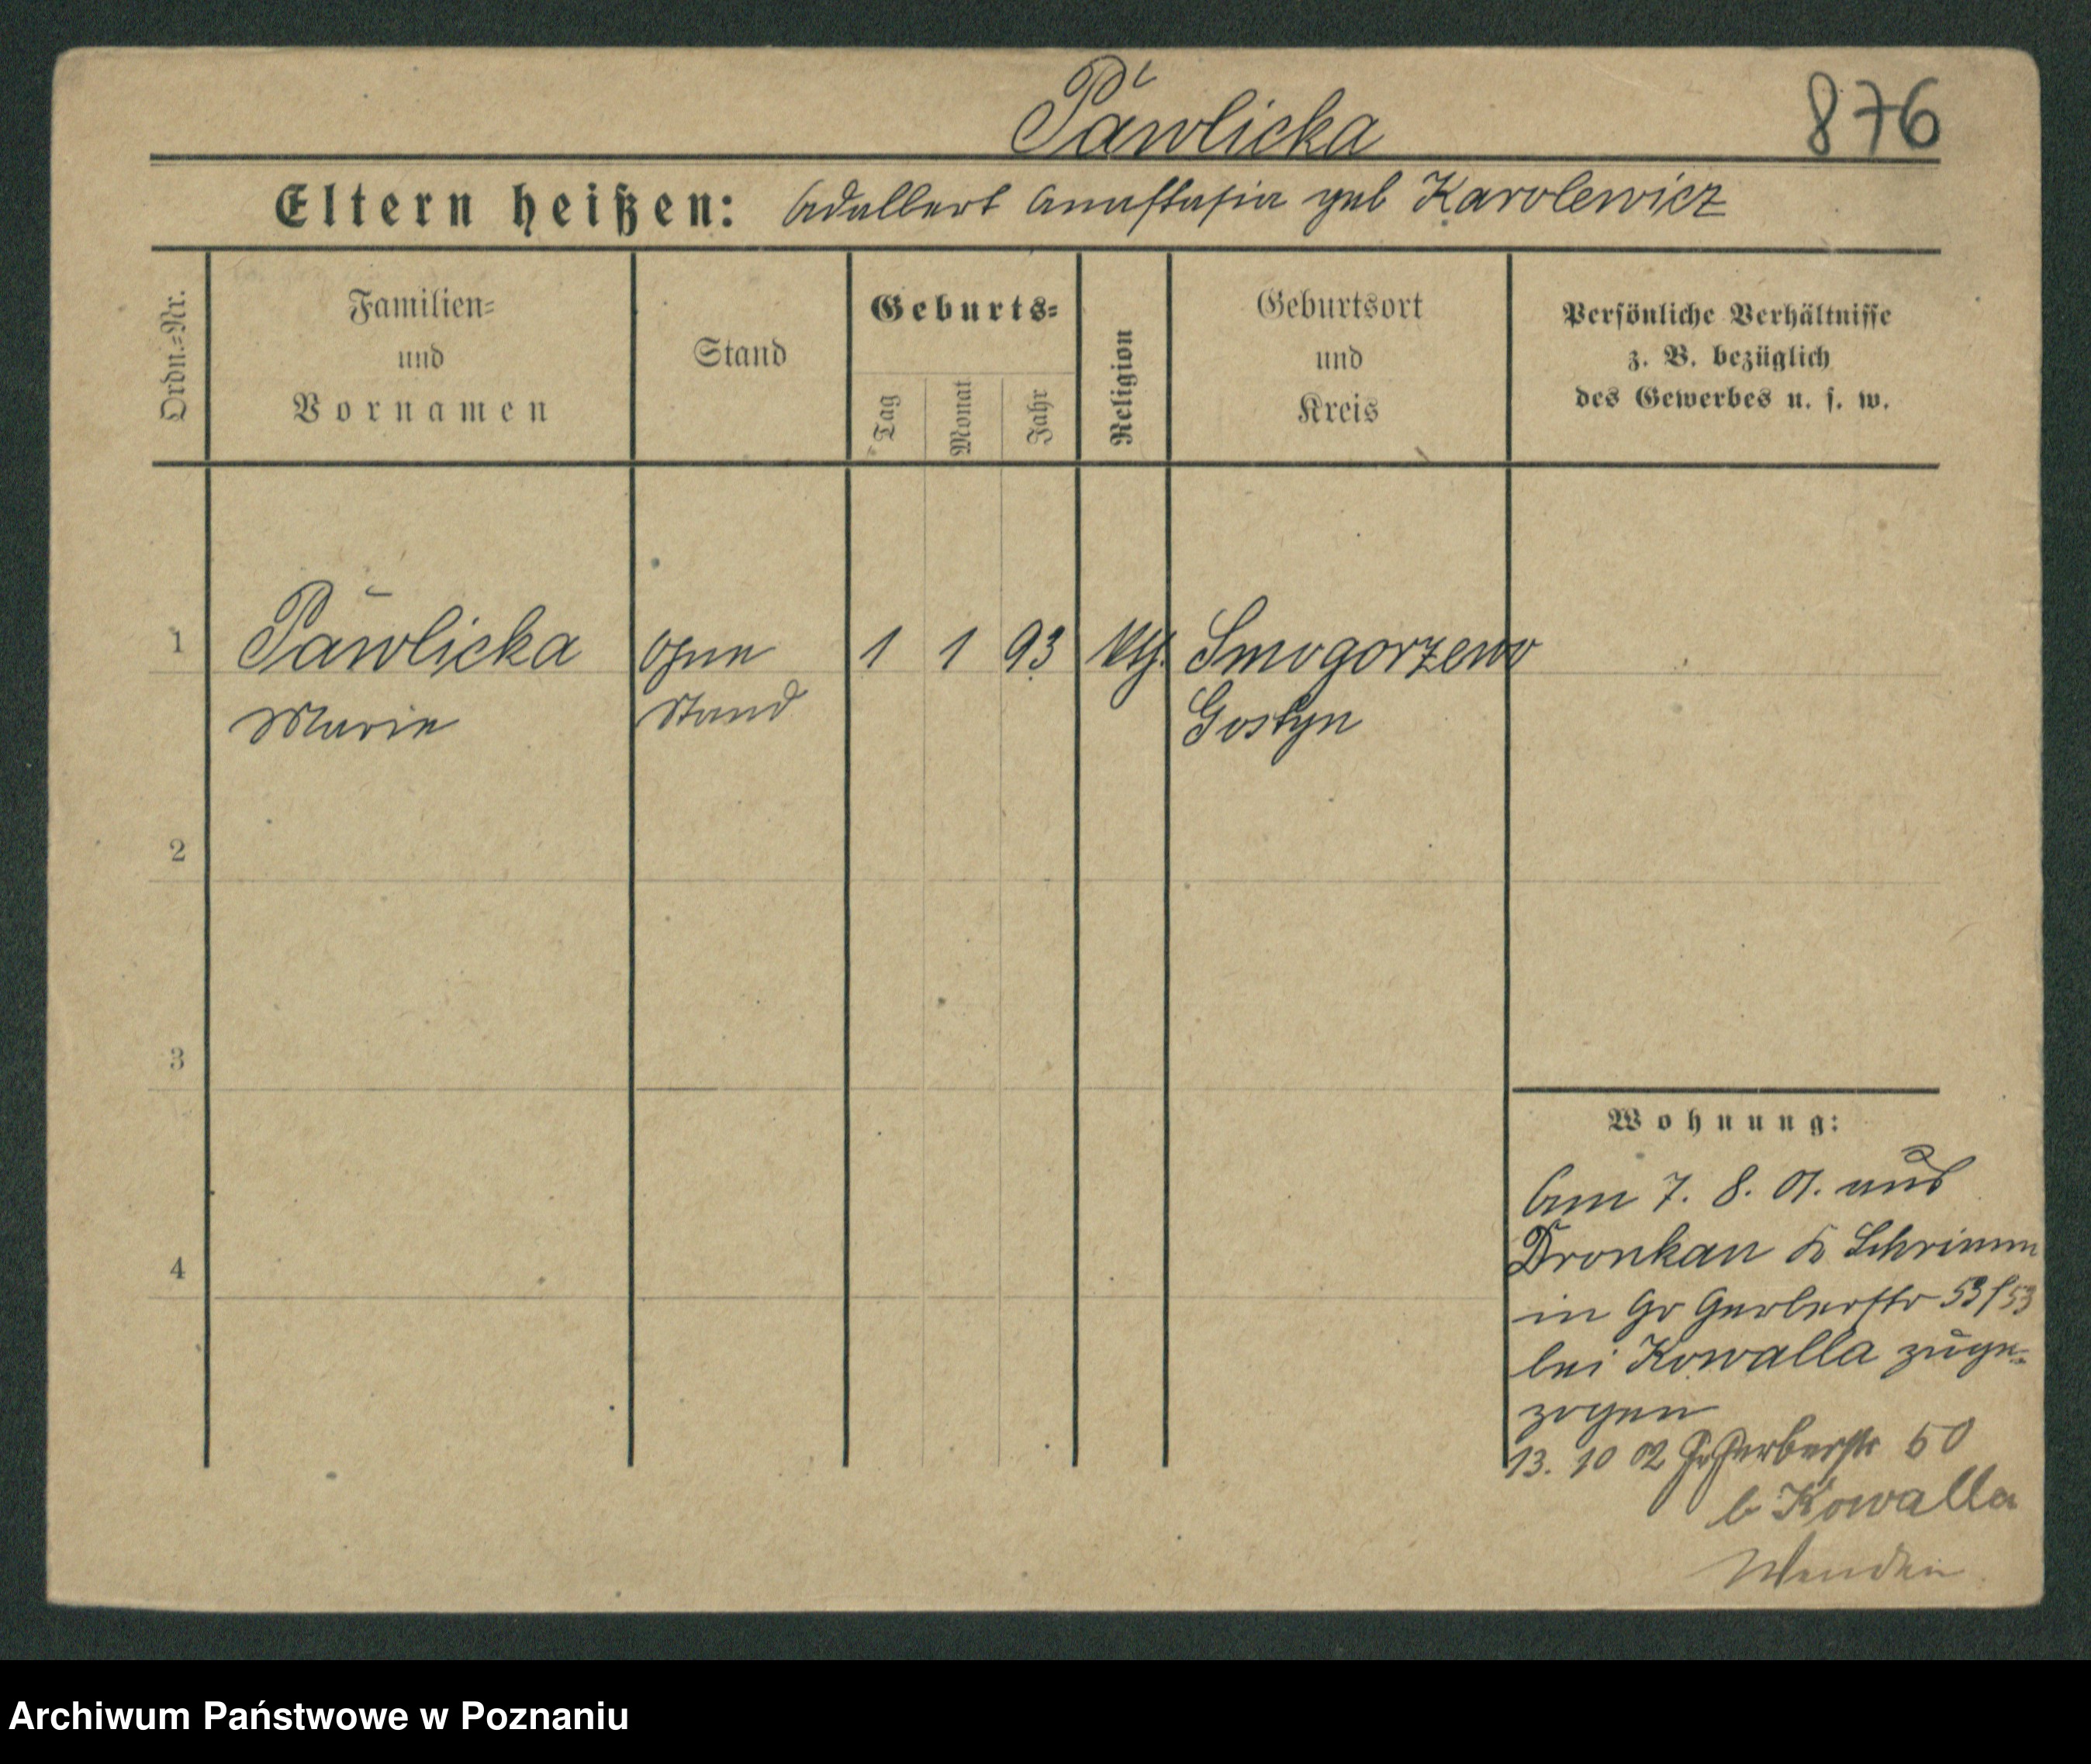 Pawlicka
876
Eltern heißen: Adalbert Anastasia geb Karolewicz
Ordn.-Nr.
Familien-
und
Vornamen
Stand
Geburts-
Tag
Monat
Jahr
Religion
Geburtsort
und
Kreis
Persönliche Verhältnisse
z. B. bezüglich
des Gewerbes u. s. w.
1 Pawlicka ohne 1 1 93 kth. Smogorzewo
Marie Stand Gostyn
2
3
4
Wohnung:
Am 7. 8. 01. aus
Dronkau Kr Schrimm
in Gr Gerberstr 53/53
bei Kowalla zuge-
zogen
13. 10 02 Gr Gerberstr 50
b Kowalla
Archiwum Państwowe w Poznaniu